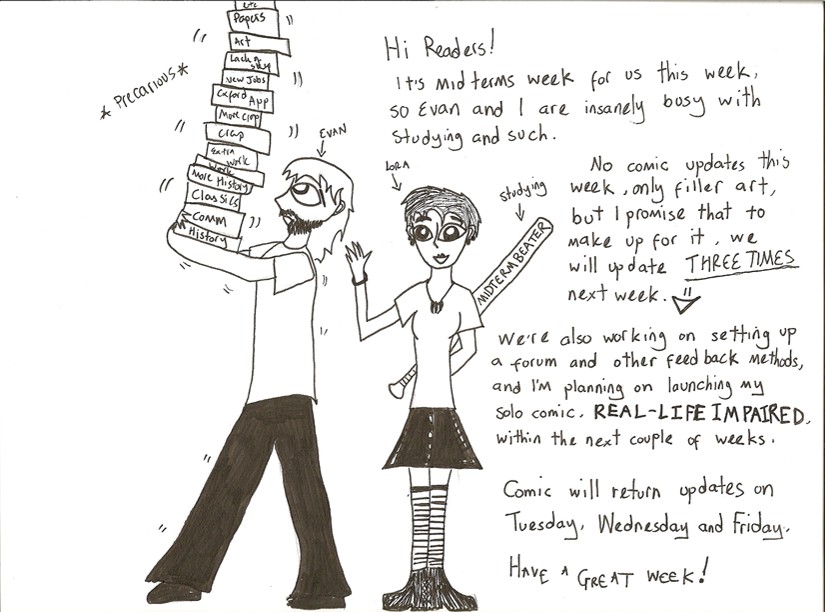 etc
Papers
Art
Lack of sleep
New Jobs
Oxford App
More crap
crap
Extra work
Work
More History
Classics
COMM
History
* Precarious *
EVAN
LORA
Studying
MIDTERM BEATER
Hi Readers!
It's midterms week for us this week,
so Evan and I are insanely busy with
studying and such.
No comic updates this
week, only filler art,
but I promise that to
make up for it, we
will update THREE TIMES
next week.
We're also working on setting up
a forum and other feedback methods,
and I'm planning on launching my
solo comic, REAL-LIFE IMPAIRED,
within the next couple of weeks.
Comic will return updates on
Tuesday, Wednesday and Friday.
HAVE A GREAT WEEK!